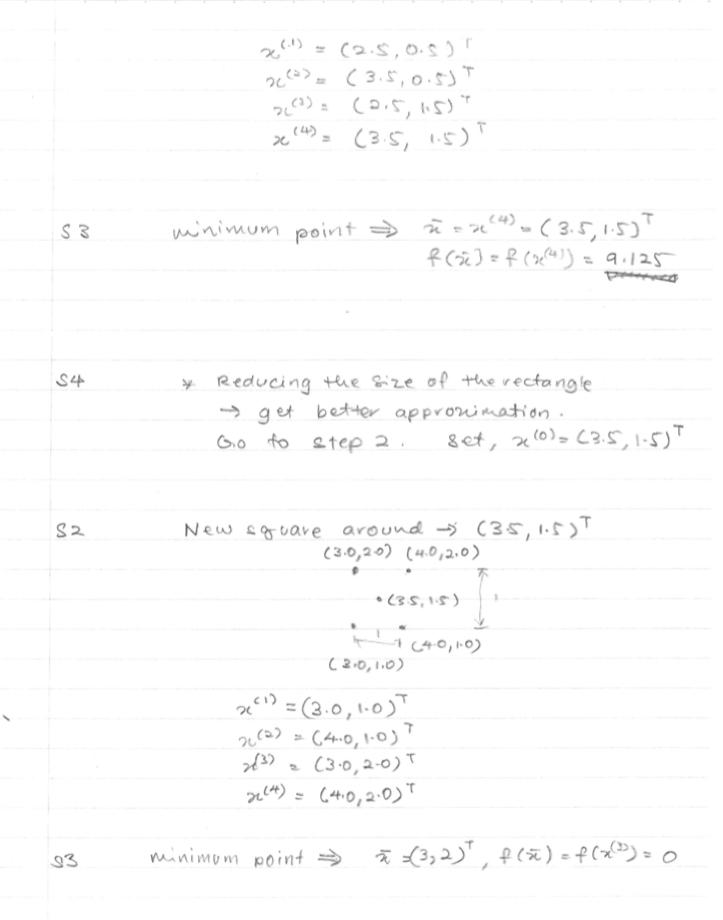 x⁽¹⁾ = (2.5, 0.5)ᵀ
x⁽²⁾ = (3.5, 0.5)ᵀ
x⁽³⁾ = (2.5, 1.5)ᵀ
x⁽⁴⁾ = (3.5, 1.5)ᵀ
S3 minimum point ⇒ x̄ = x⁽⁴⁾ = (3.5, 1.5)ᵀ
f(x̄) = f(x⁽⁴⁾) = 9.125
S4 * Reducing the size of the rectangle
→ get better approximation.
Go to step 2. Set, x⁽⁰⁾ = (3.5, 1.5)ᵀ
S2 New square around → (3.5, 1.5)ᵀ
(3.0, 2.0) (4.0, 2.0)
(3.5, 1.5) 1
1 (4.0, 1.0)
(3.0, 1.0)
x⁽¹⁾ = (3.0, 1.0)ᵀ
x⁽²⁾ = (4.0, 1.0)ᵀ
x⁽³⁾ = (3.0, 2.0)ᵀ
x⁽⁴⁾ = (4.0, 2.0)ᵀ
S3 minimum point ⇒ x̄ = (3, 2)ᵀ, f(x̄) = f(x⁽³⁾) = 0